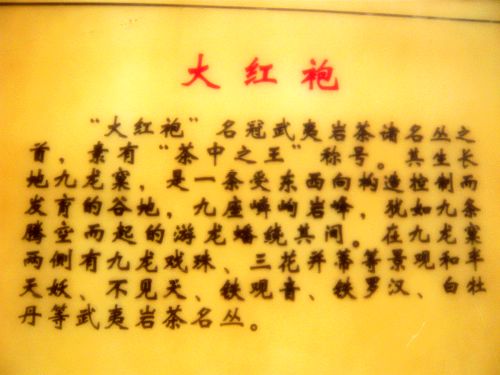 大红袍
“大红袍”名冠武夷岩茶诸名丛之
首，素有“茶中之王”称号。其生长
地九龙窠，是一条受东西向构造控制而
发育的谷地，九座嶙峋岩峰，犹如九条
腾空而起的游龙蟠绕其间。在九龙窠
两侧有九龙戏珠、三花并蒂等景观和半
天妖、不见天、铁观音、铁罗汉、白牡
丹等武夷岩茶名丛。